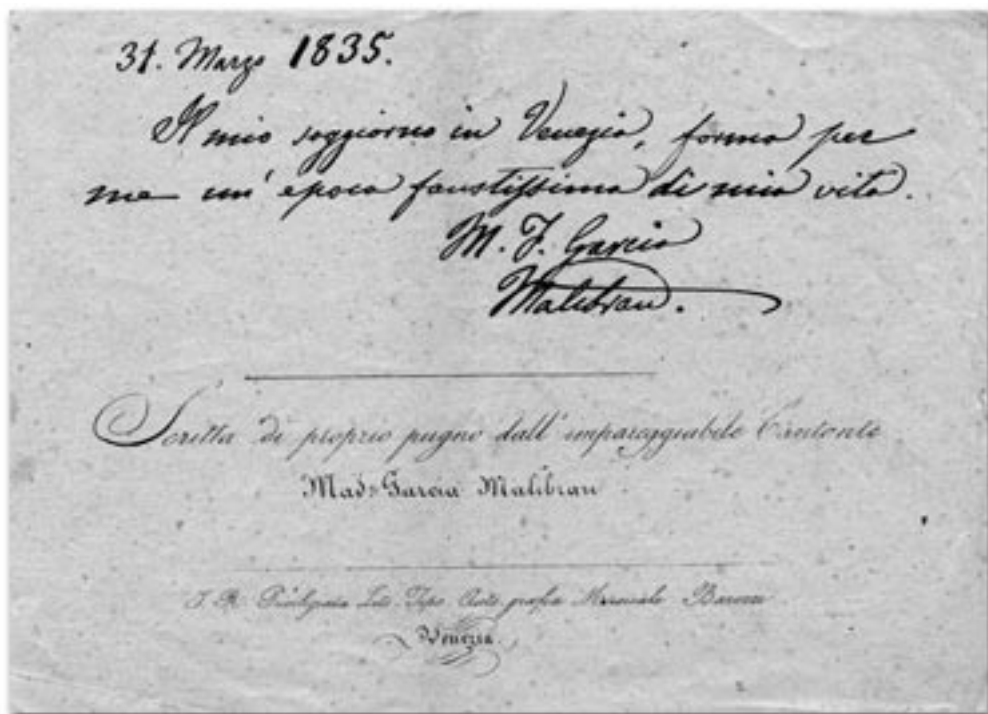 31. Marzo 1835.
Il mio soggiorno in Venezia, forma per
me un' epoca faustissima di mia vita.
M. F. Garcia
Malibran.
Scritta di proprio pugno dall' impareggiabile Cantante
Mad. Garcia Malibran
I. R. Privilegiata Lito. Tipo. Calco. grafia Barozzi
Venezia